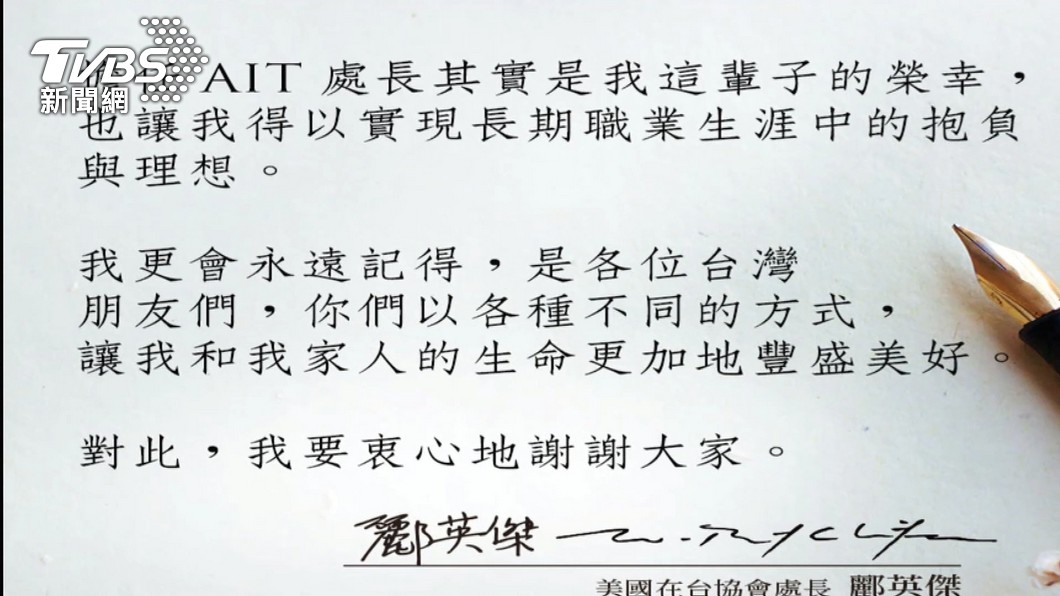 TVBS
新聞網
AIT 處長其實是我這輩子的榮幸，
也讓我得以實現長期職業生涯中的抱負
與理想。
我更會永遠記得，是各位台灣
朋友們，你們以各種不同的方式，
讓我和我家人的生命更加地豐盛美好。
對此，我要衷心地謝謝大家。
酈英傑
美國在台協會處長 酈英傑